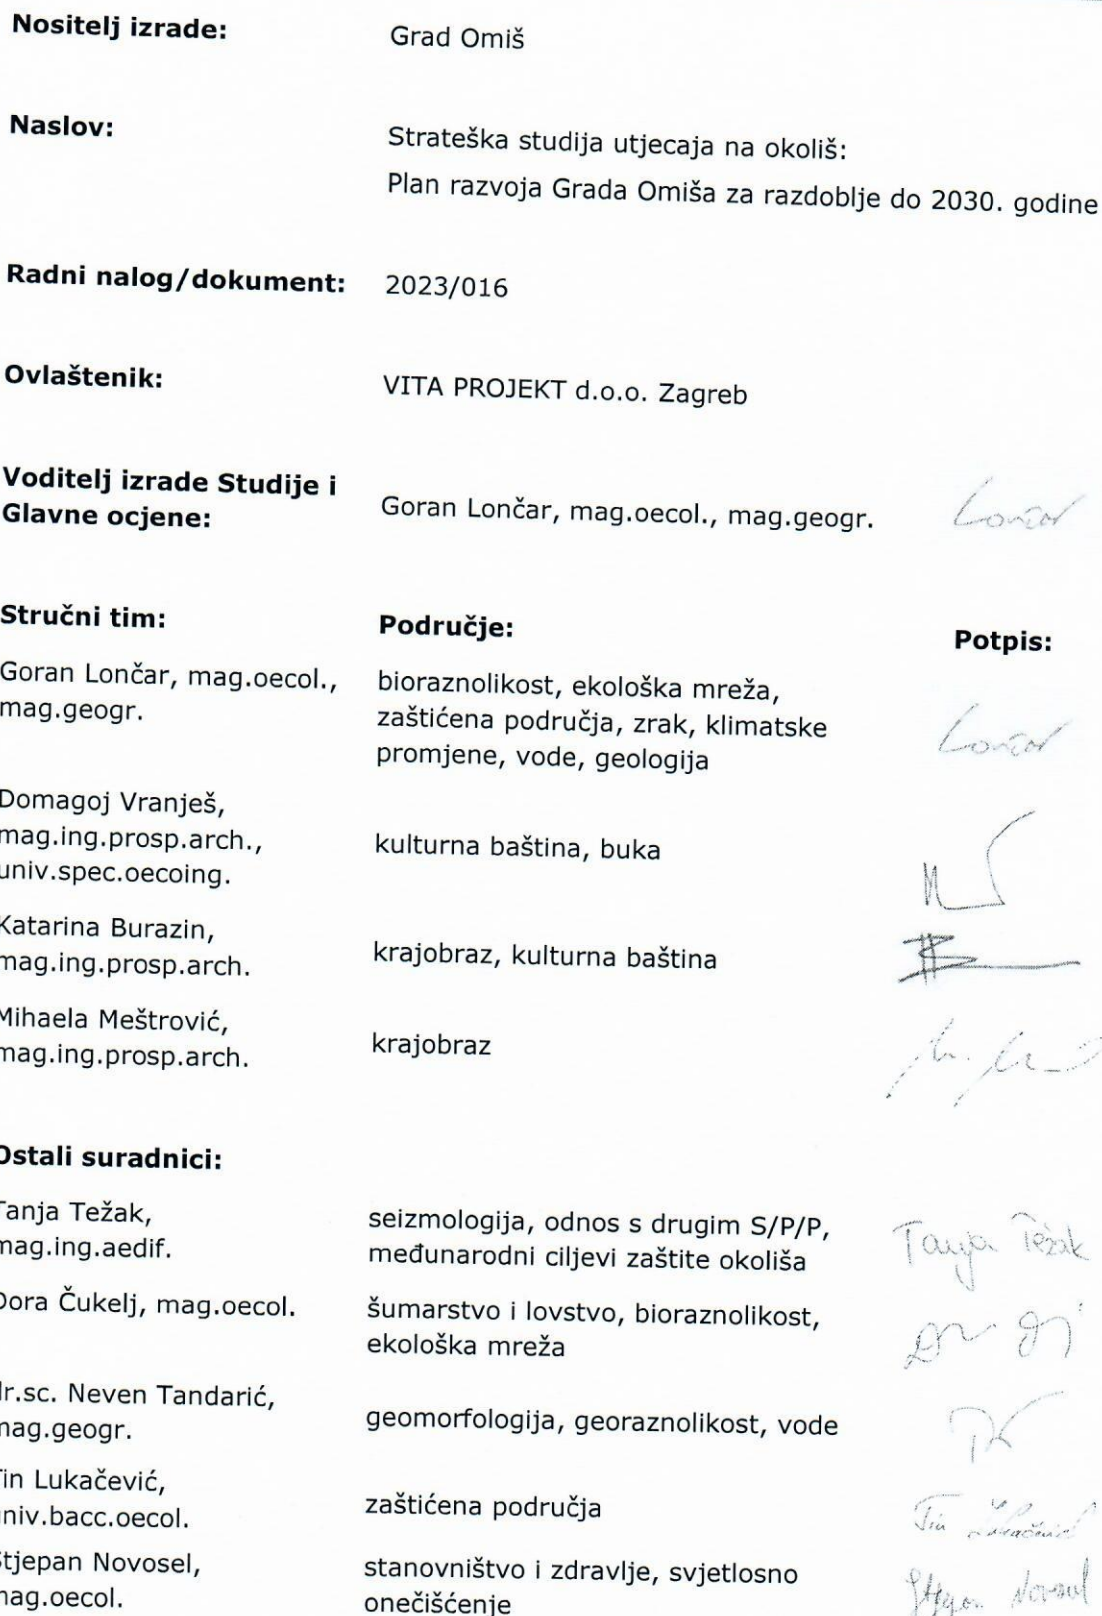 Nositelj izrade: Grad Omiš
Naslov: Strateška studija utjecaja na okoliš:
Plan razvoja Grada Omiša za razdoblje do 2030. godine
Radni nalog/dokument: 2023/016
Ovlaštenik: VITA PROJEKT d.o.o. Zagreb
Voditelj izrade Studije i
Glavne ocjene: Goran Lončar, mag.oecol., mag.geogr. Lončar
Stručni tim: Područje: Potpis:
Goran Lončar, mag.oecol., bioraznolikost, ekološka mreža,
mag.geogr. zaštićena područja, zrak, klimatske
promjene, vode, geologija Lončar
Domagoj Vranješ,
mag.ing.prosp.arch., kulturna baština, buka
univ.spec.oecoing.
Katarina Burazin,
mag.ing.prosp.arch. krajobraz, kulturna baština
Mihaela Meštrović,
mag.ing.prosp.arch. krajobraz
Ostali suradnici:
Tanja Težak, seizmologija, odnos s drugim S/P/P,
mag.ing.aedif. međunarodni ciljevi zaštite okoliša Tanja Težak
Dora Čukelj, mag.oecol. šumarstvo i lovstvo, bioraznolikost,
ekološka mreža
dr.sc. Neven Tandarić,
mag.geogr. geomorfologija, georaznolikost, vode
Tin Lukačević,
univ.bacc.oecol. zaštićena područja Tin Lukačević
Stjepan Novosel, stanovništvo i zdravlje, svjetlosno
mag.oecol. onečišćenje Stjepan Novosel